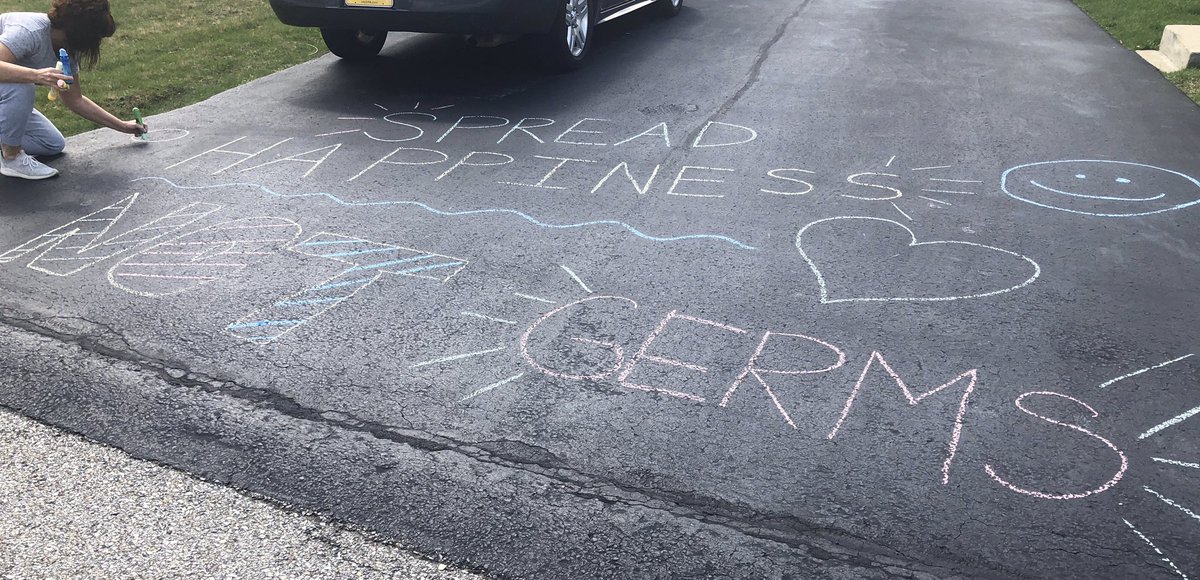 SPREAD
HAPPINESS
NOT
GERMS